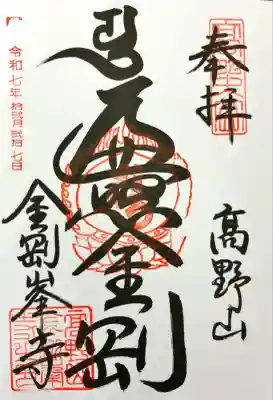 奉拝
高野山
遍照金剛
金剛峯寺
令和七年拾弐月弐拾七日